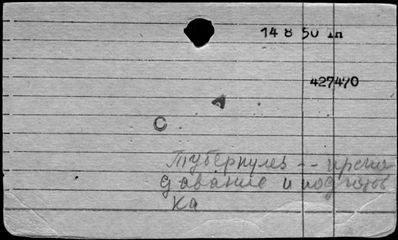 14 8 50 In
427470
Туберкулез -- препо
давание и подготов
ка